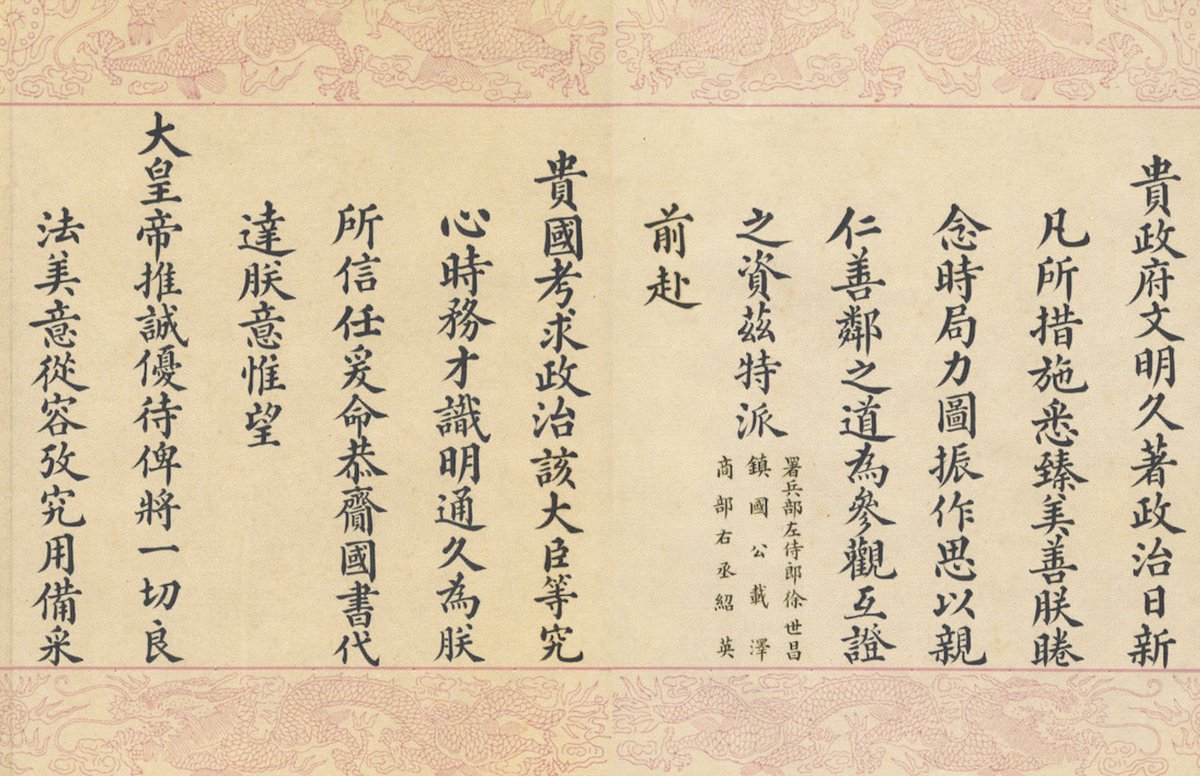 貴政府文明久著政治日新
凡所措施悉臻美善朕睠
念時局力圖振作思以親
仁善鄰之道為參觀互證
之資茲特派
署兵部左侍郎徐世昌
鎮國公載澤
商部右丞紹英
前赴
貴國考求政治該大臣等究
心時務才識明通久為朕
所信任爰命恭齎國書代
達朕意惟望
大皇帝推誠優待俾將一切良
法美意從容攷究用備采